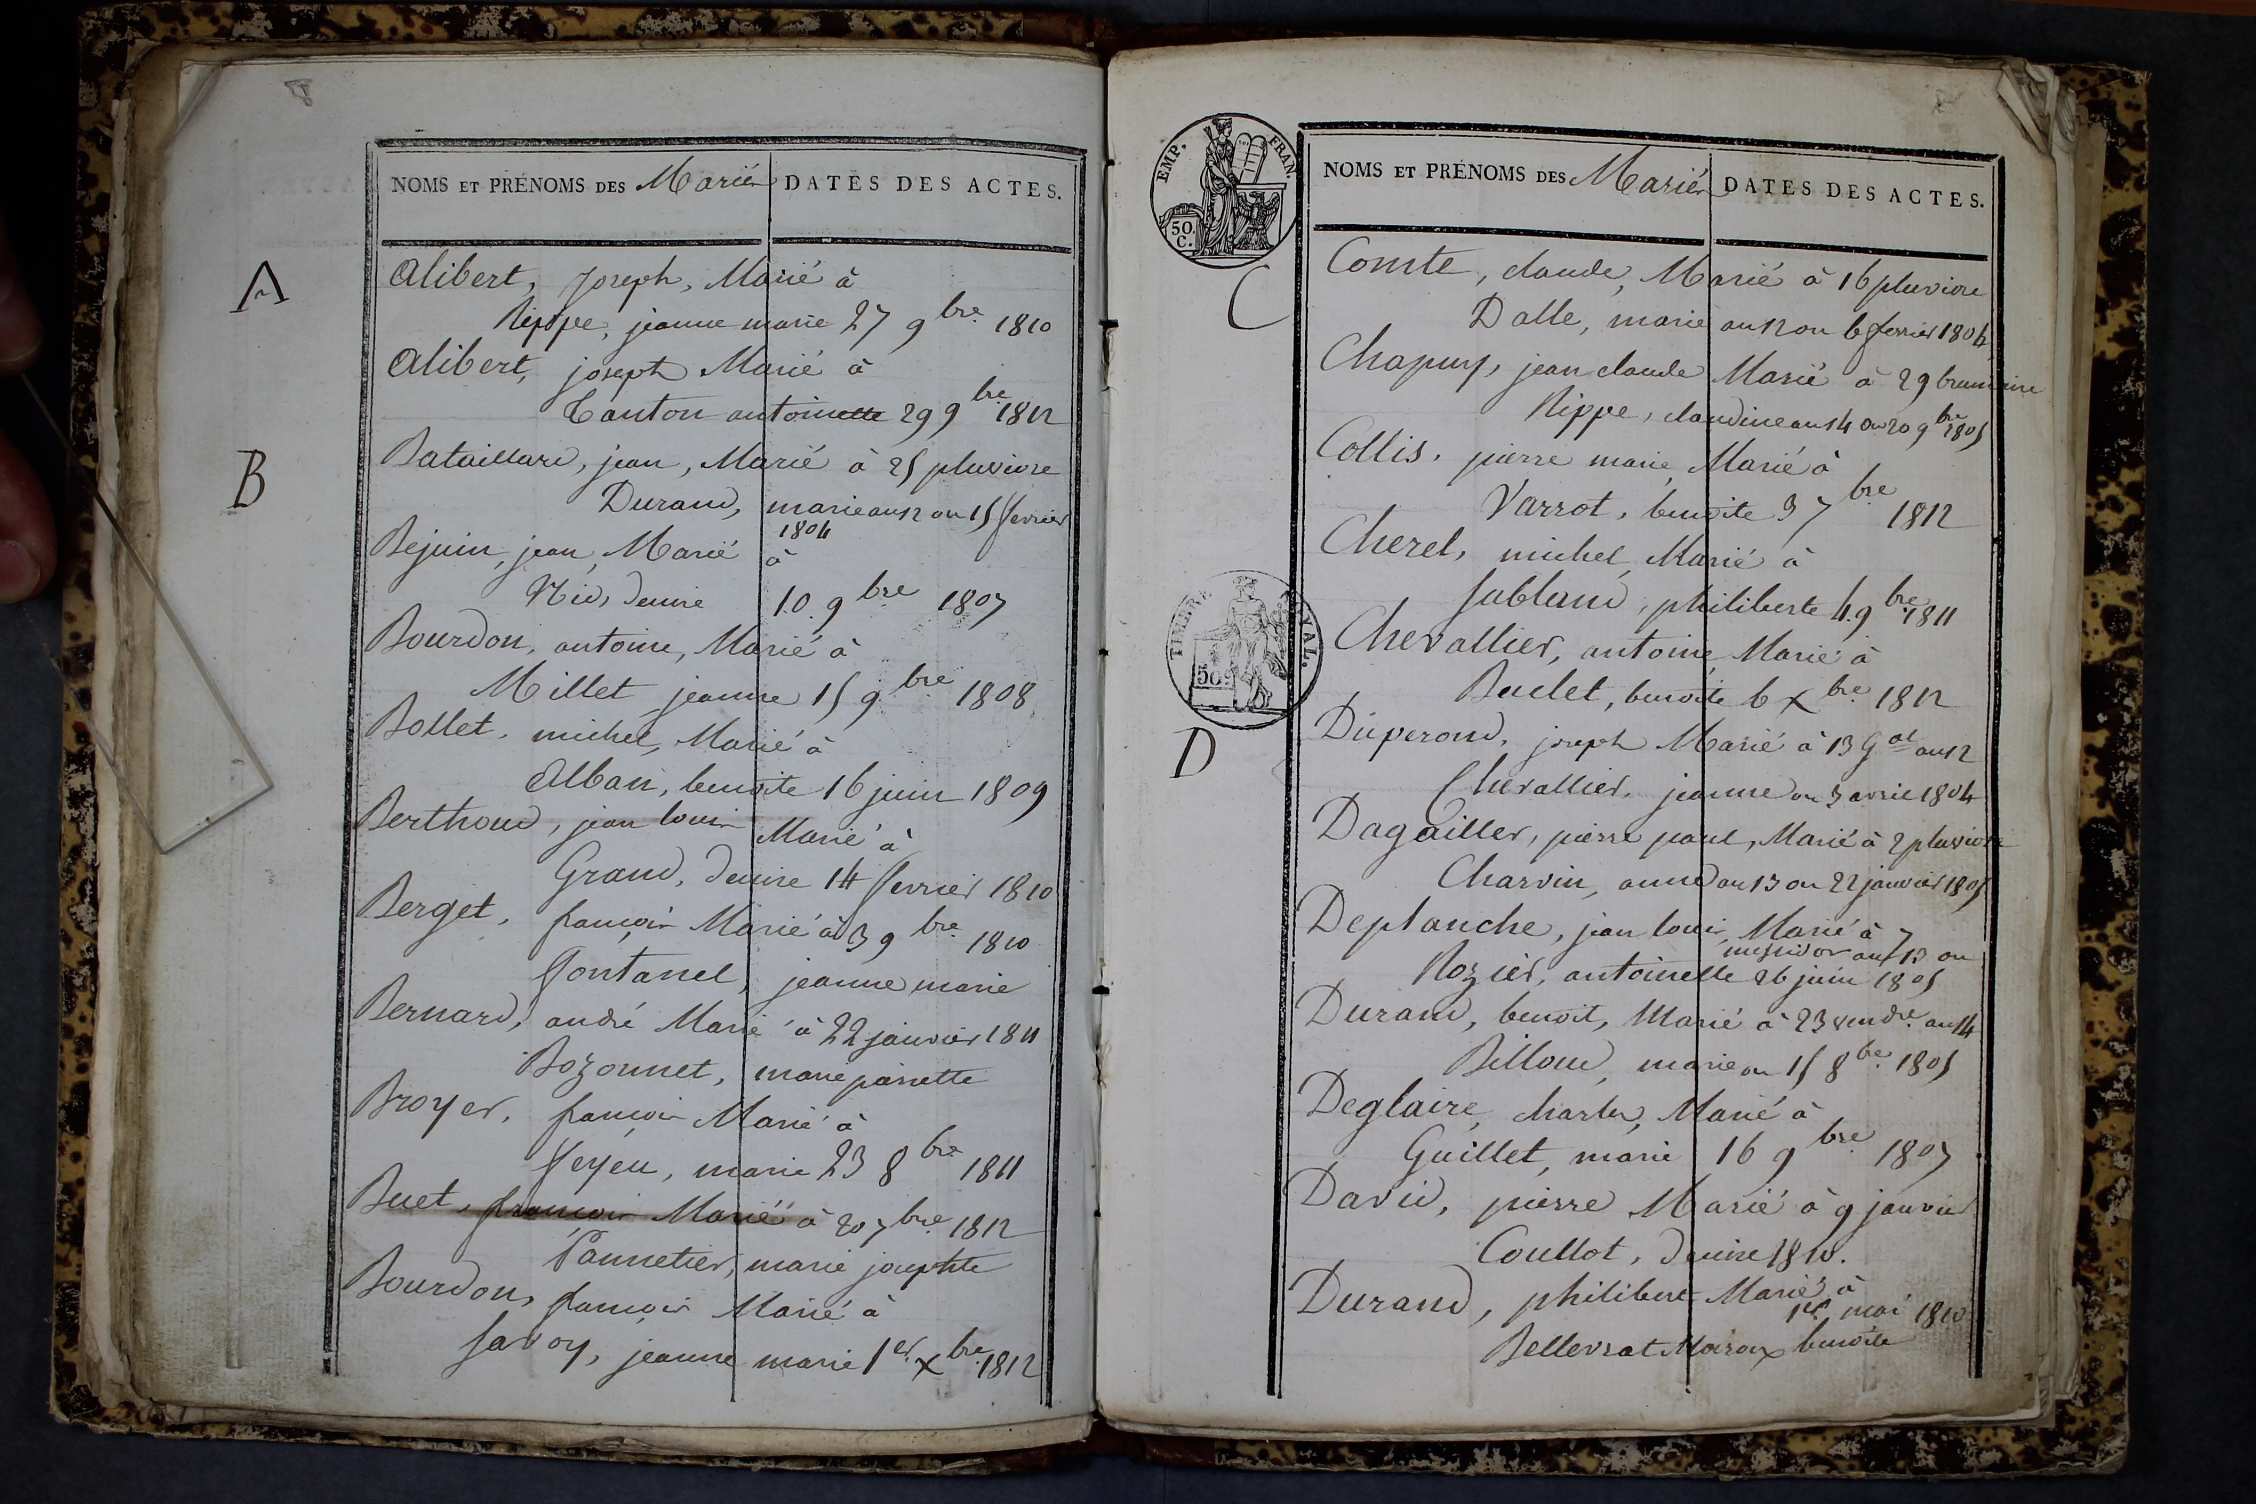 NOMS ET PRÉNOMS DES Mariés DATES DES ACTES.
A
Alibert, Joseph, Marié à
Rippe, jeanne marie 27 9bre 1810
Alibert, joseph Marié à
Canton antoinette 29 9bre 1812
B
Bataillard, jean, Marié à 25 pluviose
Durand, marie an 12 ou 15 fevrier
1804
Bejuin, jean, Marié à
Nid, denise 10 9bre 1807
Bourdon, antoine, Marié à
Millet jeanne 15 9bre 1808
Bollet, michel, Marié à
Alban, benoite 16 juin 1809
Berthoud, jean louis Marié à
Grand, denise 14 fevrier 1810
Berget, françois Marié à 3 9bre 1810
fontanel, jeanne marie
Bernard, andré Marié à 22 janvier 1811
Bozonnet, marie pierrette
Broyer, françois Marié à
feyeu, marie 23 8bre 1811
Buet, françois Marié à 20 7bre 1812
Pannetier, marie josephte
Bourdon, françois Marié à
Savoy, jeanne marie 1er xbre 1812
EMP. FRAN.
50. C.
NOMS ET PRÉNOMS DES Mariés DATES DES ACTES.
C
Comte, claude, Marié à 16 pluviose
Dalle, marie an 12 ou 6 fevrier 1804
Chapuy, jean claude Marié à 29 brumaire
Rippe, claudine an 14 ou 20 9bre 1805
Collis, pierre marie, Marié à
Varrot, benoite 3 7bre 1812
Cherel, michel, Marié à
Jabland, philiberte 4 9bre 1811
TIMBRE ROYAL.
50c
Chevallier, antoine Marié à
Buclet, benoite 6 xbre 1812
D
Duperond, joseph Marié à 13 gal an 12
Chevallier, jeanne ou 3 avril 1804
Dagailler, pierre paul, Marié à 2 pluviose
Charvin, anne an 13 ou 22 janvier 1805
Deplanche, jean louis, Marié à 7
messidor an 13 ou
Rozier, antoinette 26 juin 1805
Durand, benoit, Marié à 23 vendre an 14
Billoud, marie ou 15 8bre 1805
Deglaire, charles, Marié à
Guillet, marie 16 9bre 1807
David, pierre Marié à 9 janvier
Coullot, denise 1810.
Durand, philibert Marié à
1er mai 1810
Bellevrat Moiroux benoite